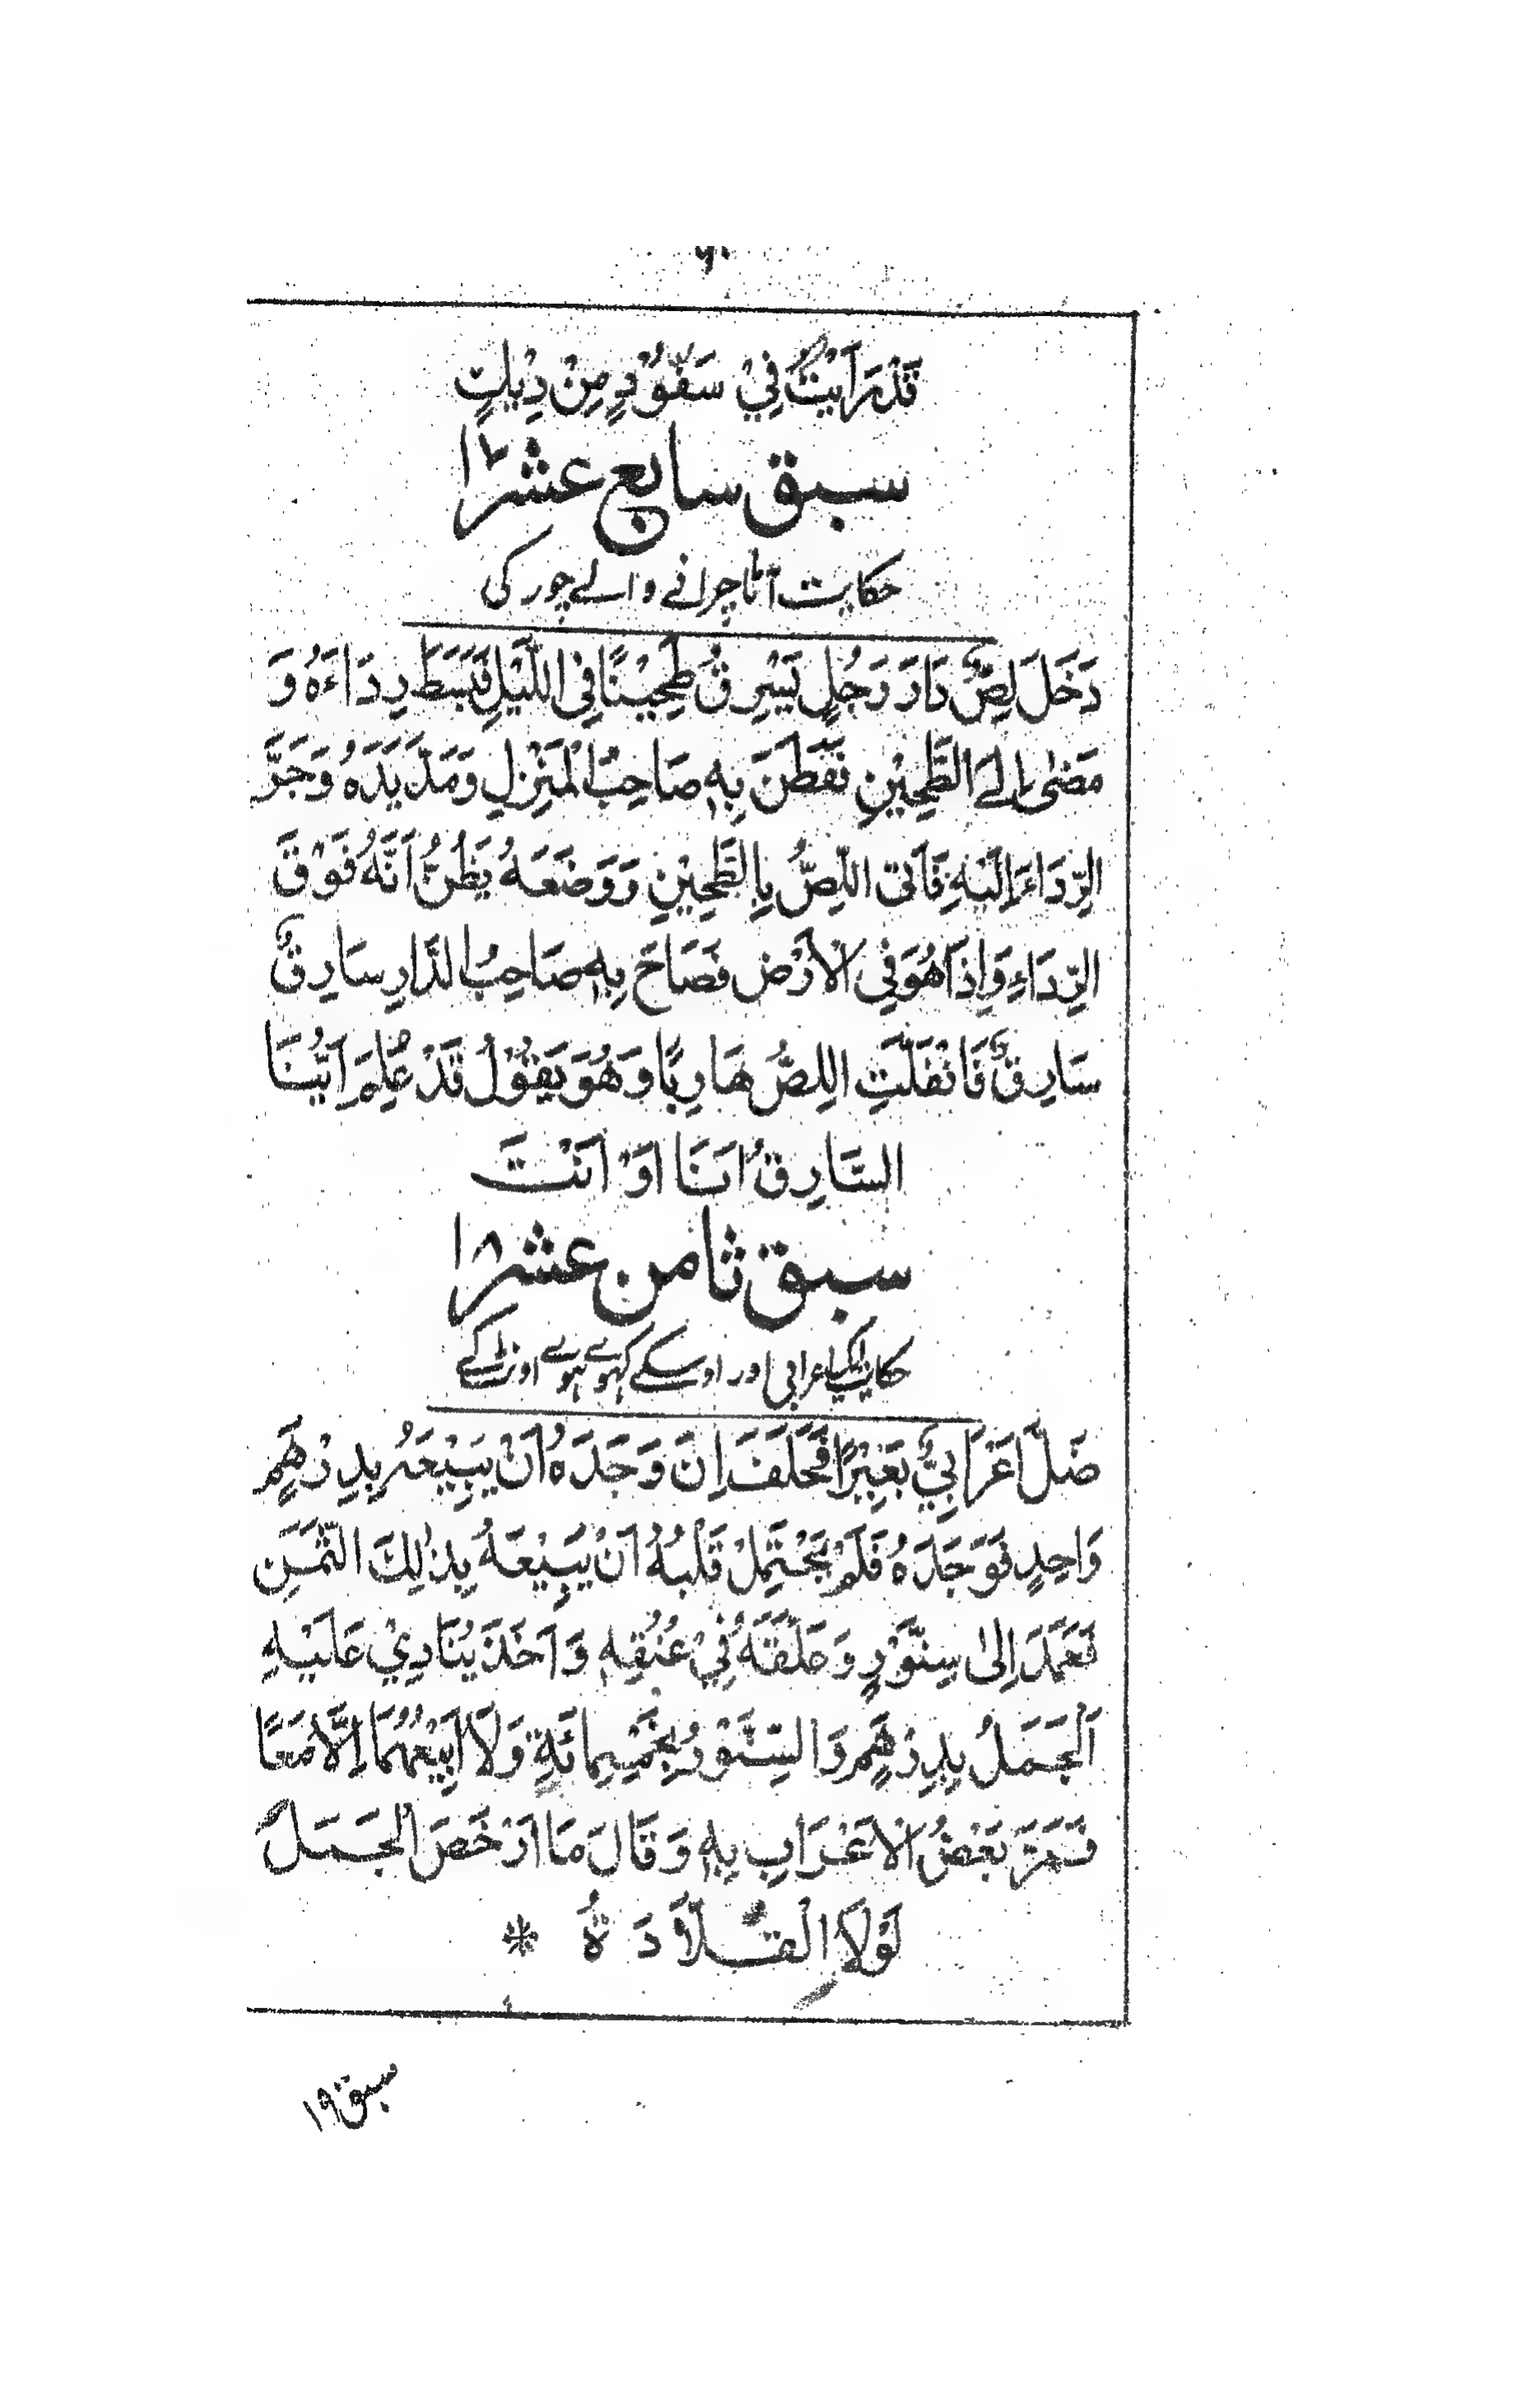 قَدْ رَاَيْتُ فِيْ سَفُّوْدٍ مِنْ دِيْكٍ
سبق سابع عشر ۱۷
حکایت آٹا چرانے والے چور کی
دَخَلَ لِصٌّ دَارَ رَجُلٍ يَسْرِقُ طَحِيْنًا فِى اللَّيْلِ فَبَسَطَ رِدَاءَهُ وَ
مَضٰى اِلَى الطَّحِيْنِ فَفَطَنَ بِهٖ صَاحِبُ الْمَنْزِلِ وَمَدَّ يَدَهُ وَجَرَّ
الرِّدَاءَ اِلَيْهِ فَاَتَى اللِّصُّ بِالطَّحِيْنِ وَوَضَعَهُ يَظُنُّ اَنَّهُ فَوْقَ
الرِّدَاءِ وَاِذَا هُوَ فِى الْاَرْضِ فَصَاحَ بِهٖ صَاحِبُ الدَّارِ سَارِقٌ
سَارِقٌ فَانْفَلَتَ اللِّصُّ هَارِبًا وَهُوَ يَقُوْلُ قَدْ عُلِمَ اَيُّنَا
السَّارِقُ اَنَا اَوْ اَنْتَ
سبق ثامن عشر ۱۸
حکایت ایک اعرابی اور اوسکے کہوے ہوے اونٹ کے
ضَلَّ اَعْرَابِيٌّ بَعِيْرًا فَحَلَفَ اِنْ وَجَدَهُ اَنْ يَبِيْعَهُ بِدِرْهَمٍ
وَاحِدٍ فَوَجَدَهُ فَلَمْ يَحْتَمِلْ قَلْبُهُ اَنْ يَبِيْعَهُ بِذٰلِكَ الثَّمَنِ
فَعَمَدَ اِلٰى سِنَّوْرٍ وَعَلَّقَهُ فِيْ عُنُقِهٖ وَاَخَذَ يُنَادِيْ عَلَيْهِ
اَلْجَمَلُ بِدِرْهَمٍ وَالسِّنَّوْرُ بِخَمْسِمِائَةٍ وَلَا اَبِيْعُهُمَا اِلَّا مَعًا
فَمَرَّ بَعْضُ الْاَعْرَابِ بِهٖ وَقَالَ مَا اَرْخَصَ الْجَمَلَ
لَوْلَا الْقَلَادَةُ *
سبق ۱۹